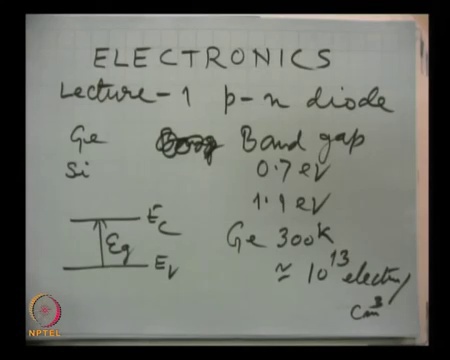 ELECTRONICS
Lecture-1 p-n diode
Ge Band gap
Si 0.7 eV
1.1 eV
Ec
Eg
Ev
Ge 300K
≃ 10^13 electron/
cm^3
NPTEL